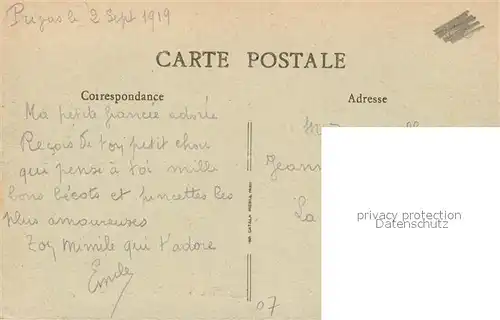 Prizac le 2 Sept 1919
CARTE POSTALE
Correspondance
Adresse
Ma petite fiancée adorée
Reçois de ton petit chou
qui pense à toi mille
bons bécots et pincettes les
plus amoureuses
Ton Mimile qui t'adore
Emile
Jeann
La
privacy protection
Datenschutz
IMP. CATALA FRÈRES, PARIS
07